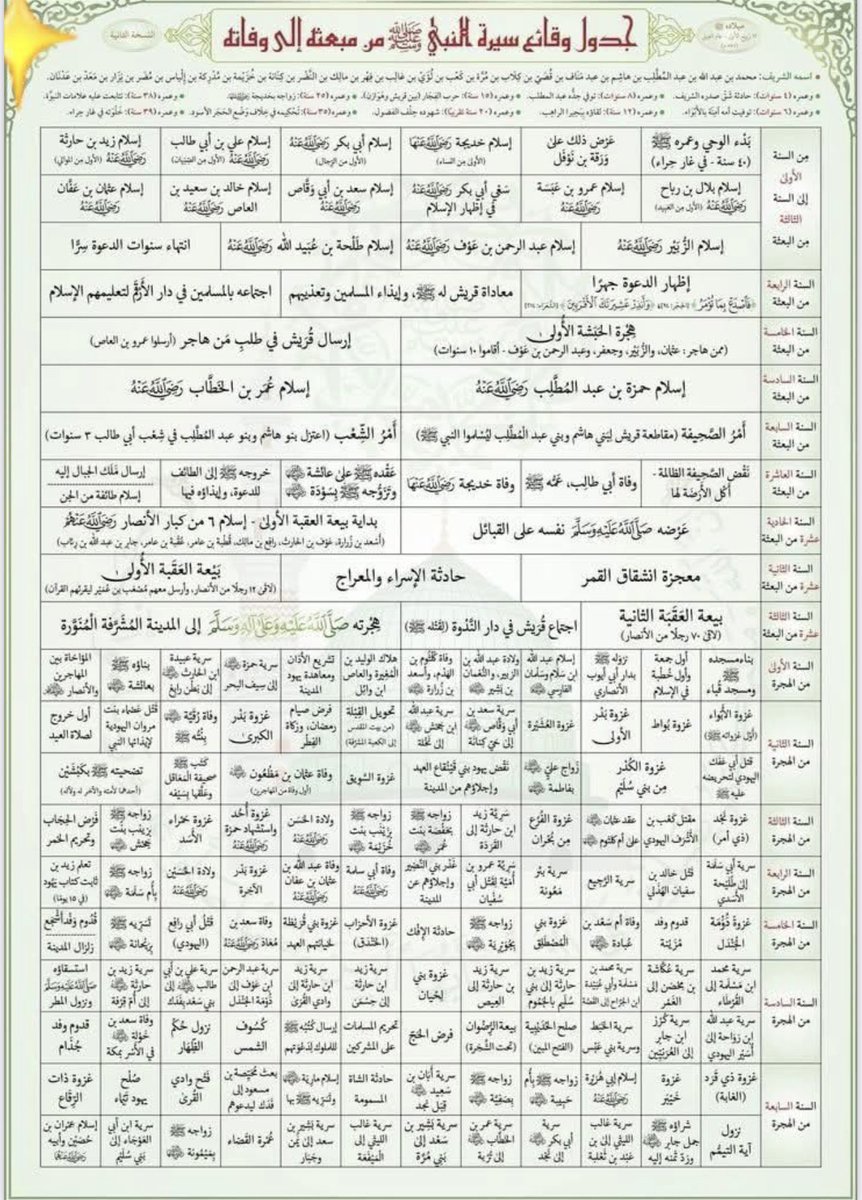 ميلاده ﷺ
النسخة الثانية
جدول وقائع سيرة النبي ﷺ من مبعثه إلى وفاته
• اسمه الشريف: محمد بن عبد الله بن عبد المُطَّلِب بن هاشم بن عبد مَناف بن قُصَيّ بن كِلاب بن مُرَّة بن كَعْب بن لُؤَيّ بن غالب بن فِهْر بن مالِك بن النَّضْر بن كِنانة بن خُزَيْمة بن مُدْرِكة بن إلْياس بن مُضَر بن نِزار بن مَعَدّ بن عَدْنان.
• وعمره (٤ سنوات): حادثة شَقّ صدره الشريف. • وعمره (٨ سنوات): توفي جدُّه عبد المطلب. • وعمره (١٥ سنة): حرب الفِجَار (بين قريش وهَوازِن). • وعمره (٢٥ سنة): زواجه بخديجة رضي الله عنها. • وعمره (٣٨ سنة): تتابعت عليه علامات النبوّة.
• وعمره (٦ سنوات): توفيت أمه آمِنَة بالأبْوَاء. • وعمره (١٢ سنة): لقاؤه ببَحِيرا الراهب. • وعمره (٢٠ سنة تقريبًا): شهوده حِلْف الفضول. • وعمره (٣٥ سنة): تَحْكيمه في خِلاف وَضْع الحَجَر الأسود. • وعمره (٣٩ سنة): خُلْوَتُه في غار حِراء.
مِن السنة الأولى إلى السنة الثالثة مِن البعثة
بَدْء الوحي وعمره ﷺ (٤٠ سنة - في غار حِراء)
عَرْض ذلك على وَرَقة بن نَوْفَل
إسلام خديجة رضي الله عنها (الأولى من النساء)
إسلام أبي بكر رضي الله عنه (الأول من الرجال)
إسلام علي بن أبي طالب رضي الله عنه (الأول من الصِّبْيان)
إسلام زيد بن حارثة رضي الله عنه (الأول من الموالي)
إسلام بلال بن رباح رضي الله عنه (الأول من العبيد)
سَعْي أبي بكر رضي الله عنه في إظهار الإسلام
إسلام عمرو بن عَبَسَة رضي الله عنه
إسلام سعد بن أبي وَقَّاص رضي الله عنه
إسلام خالد بن سعيد بن العاص رضي الله عنه
إسلام عثمان بن عَفَّان رضي الله عنه
إسلام الزُّبَيْر رضي الله عنه
إسلام عبد الرحمن بن عَوْف رضي الله عنه
إسلام طَلْحة بن عُبَيد الله رضي الله عنه
انتهاء سنوات الدعوة سِرًّا
السنة الرابعة من البعثة
إظهار الدعوة جهرًا
﴿فَاصْدَعْ بِمَا تُؤْمَرُ﴾ ﴿وَأَنذِرْ عَشِيرَتَكَ الْأَقْرَبِينَ﴾
معاداة قريش له ﷺ، وإيذاء المسلمين وتعذيبهم
اجتماعه بالمسلمين في دار الأرْقَم لتعليمهم الإسلام
السنة الخامسة من البعثة
هِجْرة الحَبَشة الأُولى
(ممن هاجر: عثمان، والزُّبَيْر، وجعفر، وعبد الرحمن بن عَوْف - أقاموا ١٠ سنوات)
إرسال قُرَيش في طلبِ مَن هاجر (أرسلوا عمرو بن العاص)
السنة السادسة من البعثة
إسلام حمزة بن عبد المُطَّلِب رضي الله عنه
إسلام عُمَر بن الخَطَّاب رضي الله عنه
السنة السابعة من البعثة
أَمْرُ الصَّحِيفة (مقاطعة قريش لِبَني هاشم وبني عبد المُطَّلِب ليُسْلموا النبي ﷺ)
أَمْرُ الشِّعْب (اعتزل بنو هاشم وبنو عبد المطّلب في شِعْب أبي طالب ٣ سنوات)
السنة العاشرة من البعثة
نَقْض الصحيفة الظالمة - أَكْل الأَرَضَة لها
وفاة أبي طالِب، عَمّه ﷺ
وفاة خديجة رضي الله عنها
عَقْده ﷺ على عائشة رضي الله عنها وتَزَوُّجه ﷺ بسَوْدَة رضي الله عنها
خروجه ﷺ إلى الطائف للدعوة، وإيذاؤه فيها
إرسال مَلَك الجبال إليه
إسلام طائفة من الجن
السنة الحادية عشرة من البعثة
عَرْضه صلى الله عليه وسلم نفسه على القبائل
بداية بيعة العقبة الأولى - إسلام ٦ من كبار الأنصار رضي الله عنهم
(أسْعَد بن زُرارة، عَوْف بن الحارث، رافِع بن مالك، قُطبة بن عامر، عُقْبة بن عامر، جابر بن عبد الله بن رِئاب)
السنة الثانية عشرة من البعثة
معجزة انشقاق القمر
حادثة الإسراء والمعراج
بَيْعة العَقَبة الأُولى
(لاقى ١٢ رجلًا من الأنصار، وأرسل معهم مُصْعَب بن عُمَيْر ليقرئهم القرآن)
السنة الثالثة عشرة من البعثة
بيعة العَقَبَة الثانية
(لاقى ٧٠ رجلًا من الأنصار)
اجتماع قُرَيش في دار النَّدْوة (لقَتْله ﷺ)
هِجْرته صلى الله عليه وعلى آله وسلم إلى المدينة المُشَرَّفة المُنَوَّرة
السنة الأولى من الهجرة
بناء مسجده ﷺ ومسجد قُباء
أول جمعة وأول خُطْبة في الإسلام
نزوله ﷺ بدار أبي أيوب الأنصاري
إسلام عبد الله ابن سَلام وسَلْمان الفارسي
ولادة عبد الله بن الزبير، والنُّعْمان بن بَشير
وفاة كُلْثوم بن الهِدْم، وأسعد بن زُرارة
هلاك الوليد بن المُغِيرة والعاص ابن وائل
تشريع الأذان ومعاهدة يهود المدينة
سرية حمزة إلى سِيف البحر
سرية عبيدة ابن الحارث إلى بَطْن رابِغ
بناؤه ﷺ بعائشة
المؤاخاة بين المهاجرين والأنصار
السنة الثانية من الهجرة
غزوة الأَبْواء (أول غزواته ﷺ)
غزوة بُواط
غزوة بَدْر الأولى
غزوة العُشَيْرَة
سرية سعد بن أبي وَقَّاص إلى حَيّ كِنانَة
سرية عبد الله ابن جحش إلى نَخْلة
تحويل القِبْلة (من بيت المقدس إلى الكعبة المشرّفة)
فرض صيام رمضان، وزكاة الفِطْر
غزوة بَدْر الكبرى
وفاة رُقَيَّة بِنْته ﷺ
قَتْل عَصْماء بنت مروان اليهودية لإيذائها النبي
أول خروج لصلاة العيد
قتل أبي عَفَك اليهودي لتحريضه عليه ﷺ
غزوة الكُدْر مِن بني سُلَيْم
زواج عليّ بفاطمة
نَقْض يهود بني قَيْنُقاع العهد وإجلاؤهم من المدينة
غزوة السَّويق
وفاة عثمان بن مَظْعُون (أول وفاة من المهاجرين)
كَتْب ﷺ صحيفة المَعاقِل وعلَّقها بسَيْفه
تضحيته ﷺ بكَبْشَيْن (أحدهما لأمته والآخر له ولآله)
السنة الثالثة من الهجرة
غزوة نَجْد (ذي أمر)
مقتل كَعْب بن الأشْرف اليهودي
عقد عثمان على أم كلثوم
غزوة الفُرُع مِن بُحْران
سَرِيَّة زيد ابن حارثة إلى القَرَدَة
زواجه ﷺ بحَفْصَة بنت عُمَر
زواجه ﷺ بزَيْنَب بنت خُزَيْمة
ولادة الحَسَن رضي الله عنه
غزوة أُحُد واستشهاد حمزة
غزوة حمراء الأسَد
زواجه ﷺ بزينب بنت جَحْش
فَرْض الحِجَاب وتحريم الخمر
السنة الرابعة من الهجرة
سرية أبي سَلَمة إلى طُلَيْحة الأسَدي
قَتْل خالد بن سفيان الهُذَلي
سرية الرَّجِيع
سرية بئر مَعُونة
سَرِيَّة عمرو بن أُمَيَّة لِقَتْل أبي سُفْيان
غَدْر بني النَّضير وإجلاؤهم عن المدينة
وفاة أبي سلمة رضي الله عنه
وفاة عبد الله بن عثمان بن عفان
غزوة بَدْر الآخِرة
ولادة الحُسَيْن رضي الله عنه
زواجه ﷺ بأُم سَلَمة
تعلم زيد بن ثابت كتاب يهود (في ١٥ يومًا)
السنة الخامسة من الهجرة
غزوة دُوْمَة الجَنْدَل
قدوم وفد مُزَيْنة
وفاة أم سَعْد بن عُبادة
غزوة بني المُصْطَلِق
زواجه ﷺ بجُوَيْرِية
حادثة الإفْك
غزوة الأحزاب (الخندق)
غزوة بني قُرَيْظة لخيانتهم العهد
وفاة سعد بن مُعَاذ رضي الله عنه
قَتْلُ أبي رافِع (اليهودي)
تَسَرِّيه ﷺ برَيْحانة
قُدوم وَفْد أشْجَع
زلزال المدينة
السنة السادسة من الهجرة
سرية محمد ابن مَسْلَمة إلى القُرَطاء
سرية عُكَّاشة بن مِحْصَن إلى الغَمْر
سرية محمد بن مَسْلَمة وأبي عُبَيْدة ابن الجَرَّاح إلى القَصَّة
سرية زيد بن حارثة إلى بني سُلَيْم بالجَمُوم
سرية زيد بن حارثة إلى العِيص
غزوة بني لِحْيان
سرية زيد ابن حارثة إلى حِسْمَى
سرية زيد ابن حارثة إلى وادي القُرى
سرية عبد الرحمن ابن عوف إلى دُوْمَة الجَنْدَل
سرية علي بن أبي طالب إلى بني سَعْد بفَدَك
سرية زيد بن حارثة إلى أم قِرْفة
استسقاؤه ﷺ ونزول المطر
سرية عبد الله ابن رَواحة إلى أُسَيْر اليهودي
سرية كُرْز ابن جابر إلى العُرَنِيِّين
سرية الخَبَط وسرية بني عَبْس
صلح الحُدَيْبِية (الفتح المبين)
بيعة الرِّضْوان (تحت الشَّجَرة)
فرض الحَج
تحريم المسلمات على المشركين
إرسال كُتُبه ﷺ للملوك لدعوتهم
كُسُوف الشمس
نزول حُكْم الظِّهار
وفاة سعد بن خَوْلة في الأَسْر بمكة
قدوم وفد جُذَام
السنة السابعة من الهجرة
غزوة ذي قَرَد (الغابة)
غزوة خَيْبَر
إسلام أبي هُرَيْرة رضي الله عنه
زواجه ﷺ بأم حبيبة
زواجه ﷺ بصَفِيَّة
سرية أَبان بن سَعِيد قِبَل نجد
حادثة الشاة المسمومة
إسلام مارية وتَسَرِّيه ﷺ بها
بعث مُحَيِّصة بن مسعود إلى فَدَك ليدعوهم
فَتْح وادي القُرى
صُلْح يهود تَيْماء
غزوة ذات الرِّقَاع
نزول آية التيمُّم
شراؤه ﷺ جمل جابر وردّ ثمنه إليه
سرية غالب الليثي إلى بني عَبْد بن ثَعْلبة
سرية أبي بكر إلى نَجْد
سرية عمر بن الخطاب إلى تُرَبة
سرية بشير بن سَعْد إلى بني مُرَّة
سرية غالب الليثي إلى المَيْفَعَة
سرية بَشِير بن سعد إلى يَمْن وجَبار
عُمْرة القَضاء
زواجه ﷺ بمَيْمُونة
سرية ابن أبي العَوْجاء إلى بني سُلَيْم
إسلام عمران بن حُصَيْن وأبيه